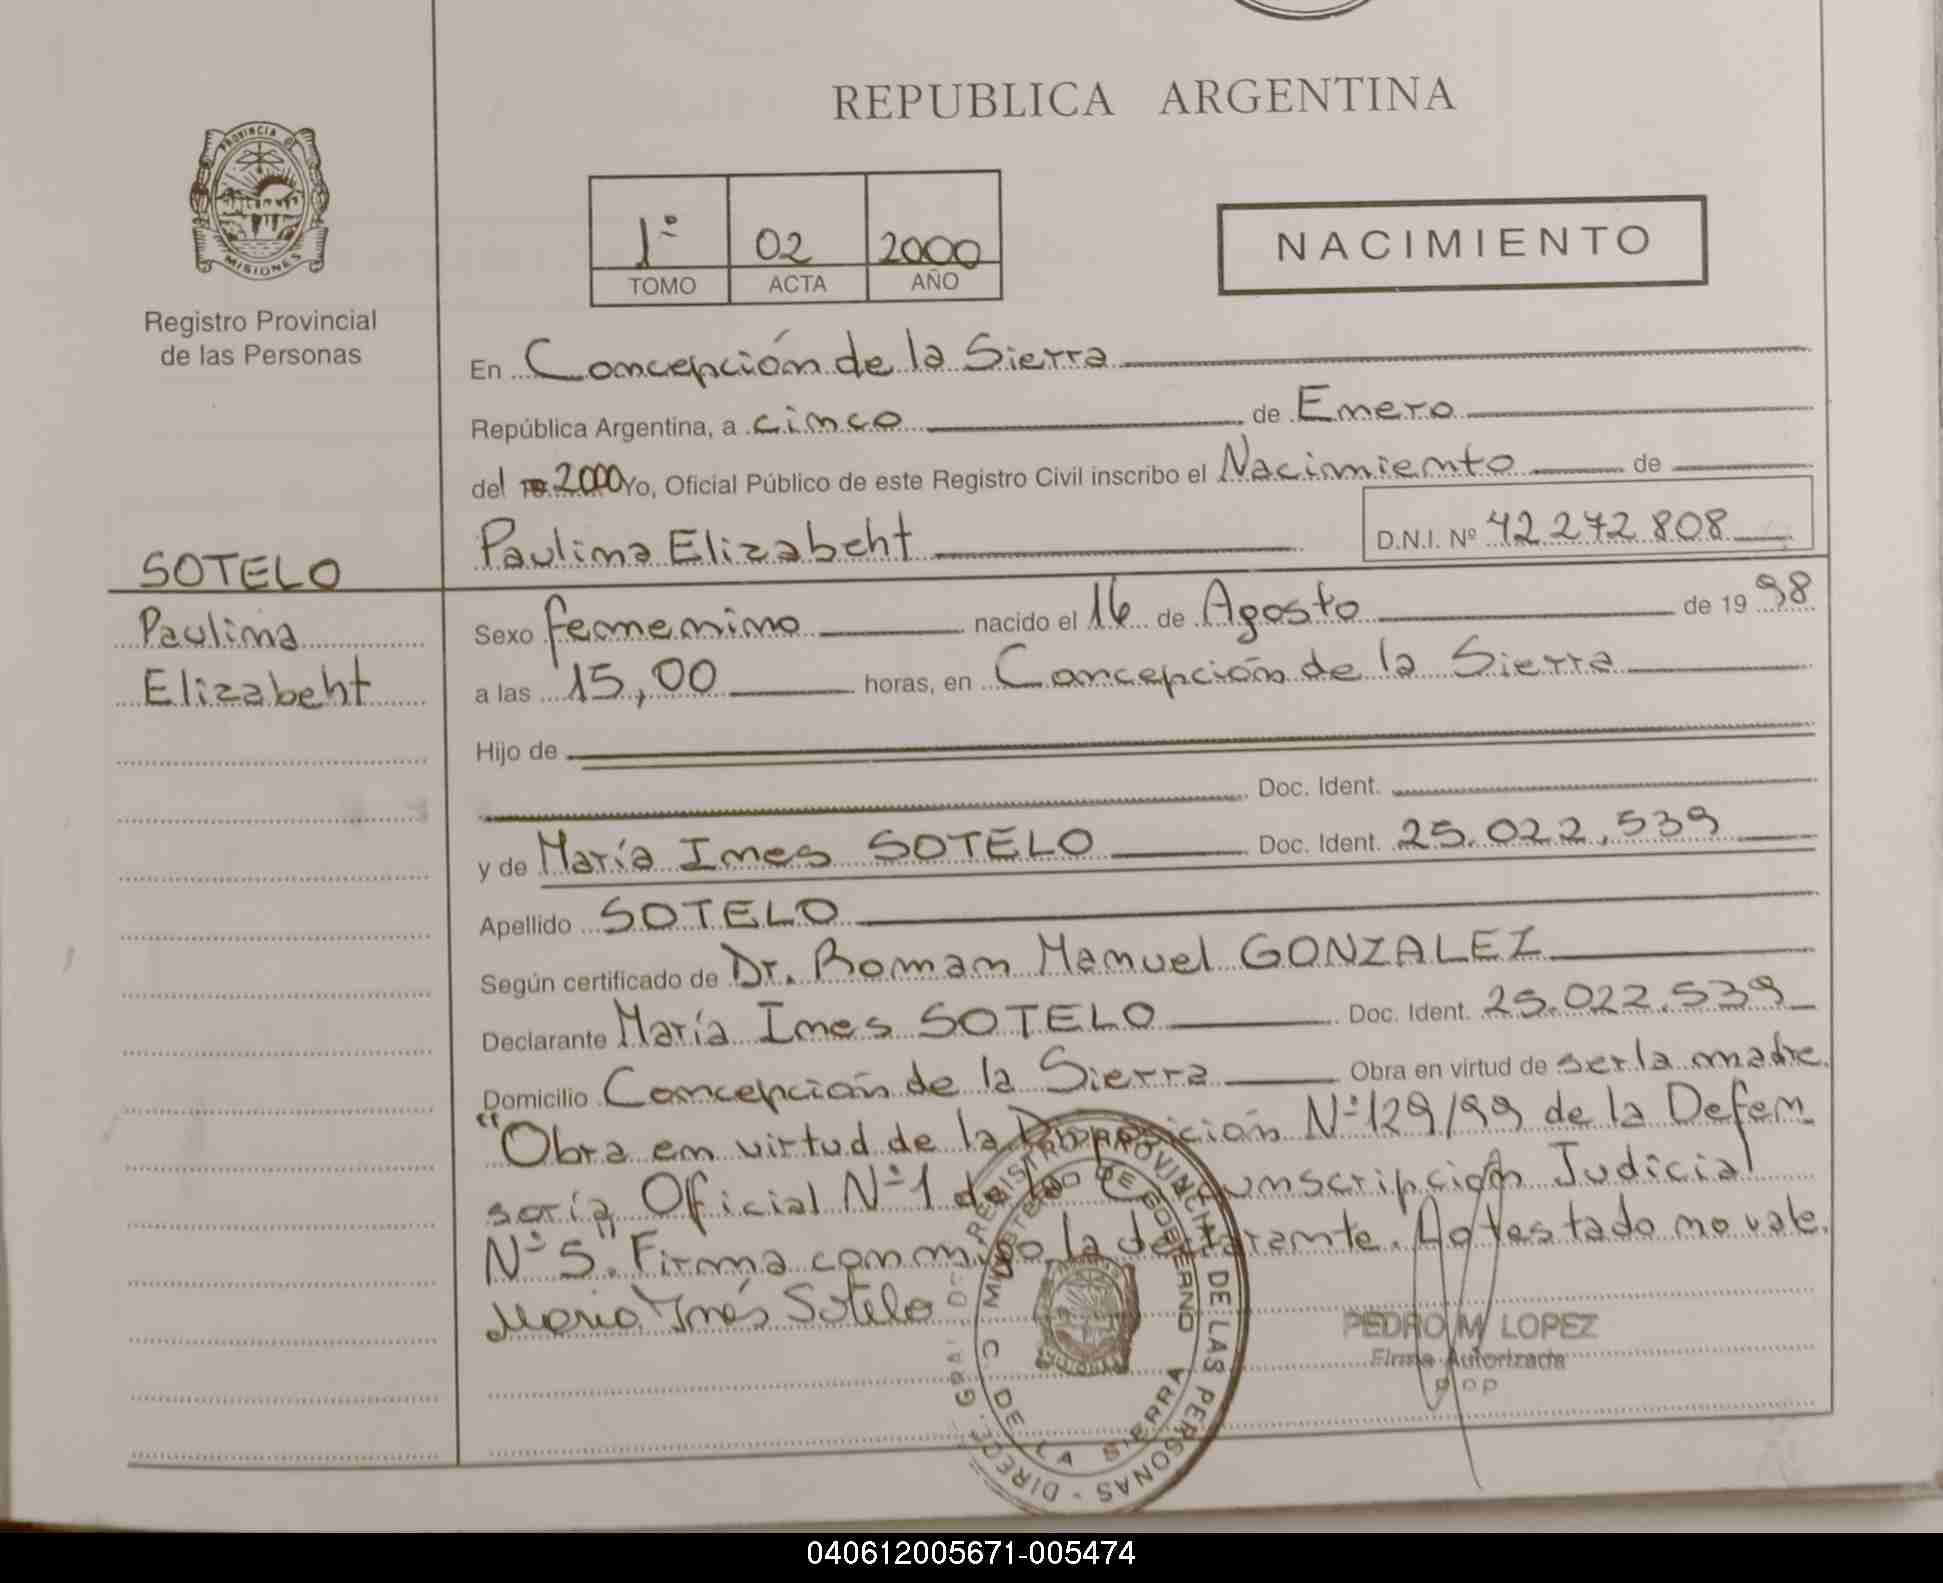 REPUBLICA ARGENTINA
PROVINCIA DE
MISIONES
Registro Provincial
de las Personas
1º 02 2000
TOMO ACTA AÑO
NACIMIENTO
En Concepción de la Sierra
República Argentina, a cinco de Enero
del 2000 Yo, Oficial Público de este Registro Civil inscribo el Nacimiento de
Paulina Elizabeht D.N.I. Nº 42.272.808
SOTELO
Paulina
Elizabeht
Sexo femenino nacido el 16 de Agosto de 19 98
a las 15,00 horas, en Concepción de la Sierra
Hijo de
Doc. Ident.
y de María Ines SOTELO Doc. Ident. 25.022.539
Apellido SOTELO
Según certificado de Dr. Roman Manuel GONZALEZ
Declarante María Ines SOTELO Doc. Ident. 25.022.539
Domicilio Concepción de la Sierra Obra en virtud de ser la madre.
"Obra en virtud de la Disposición Nº 129/99 de la Defen
soría Oficial Nº 1 de la Circunscripción Judicial
Nº 5". Firma conmigo la declarante. Agtestado no vale.
María Inés Sotelo
PEDRO M LOPEZ
Firma Autorizada
REGISTRO PROVINCIAL DE LAS PERSONAS - DIRECC. GRAL. D
MINISTERIO DE GOBIERNO
C. DE LA SIERRA
040612005671-005474